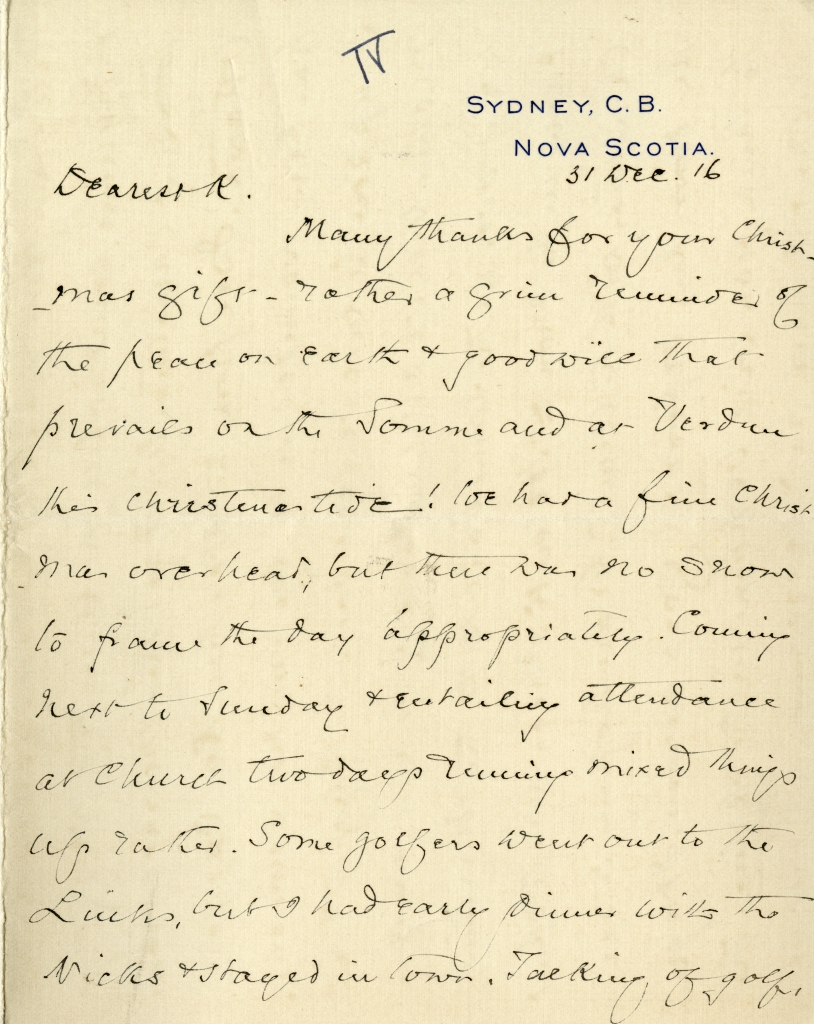 IV
SYDNEY, C. B.
NOVA SCOTIA.
31 Dec. 16
Dearest K.
Many thanks for your Christ-
-mas gift - rather a grim reminder of
the peace on earth & goodwill that
prevails on the Somme and at Verdun
this Christmastide! We had a fine Christ
mas overhead, but there was no snow
to frame the day appropriately. Coming
next to Sunday & entailing attendance
at Church two days running mixed things
up rather. Some golfers went out to the
Links, but I had early dinner with the
Nicks & stayed in town. Talking of golf,